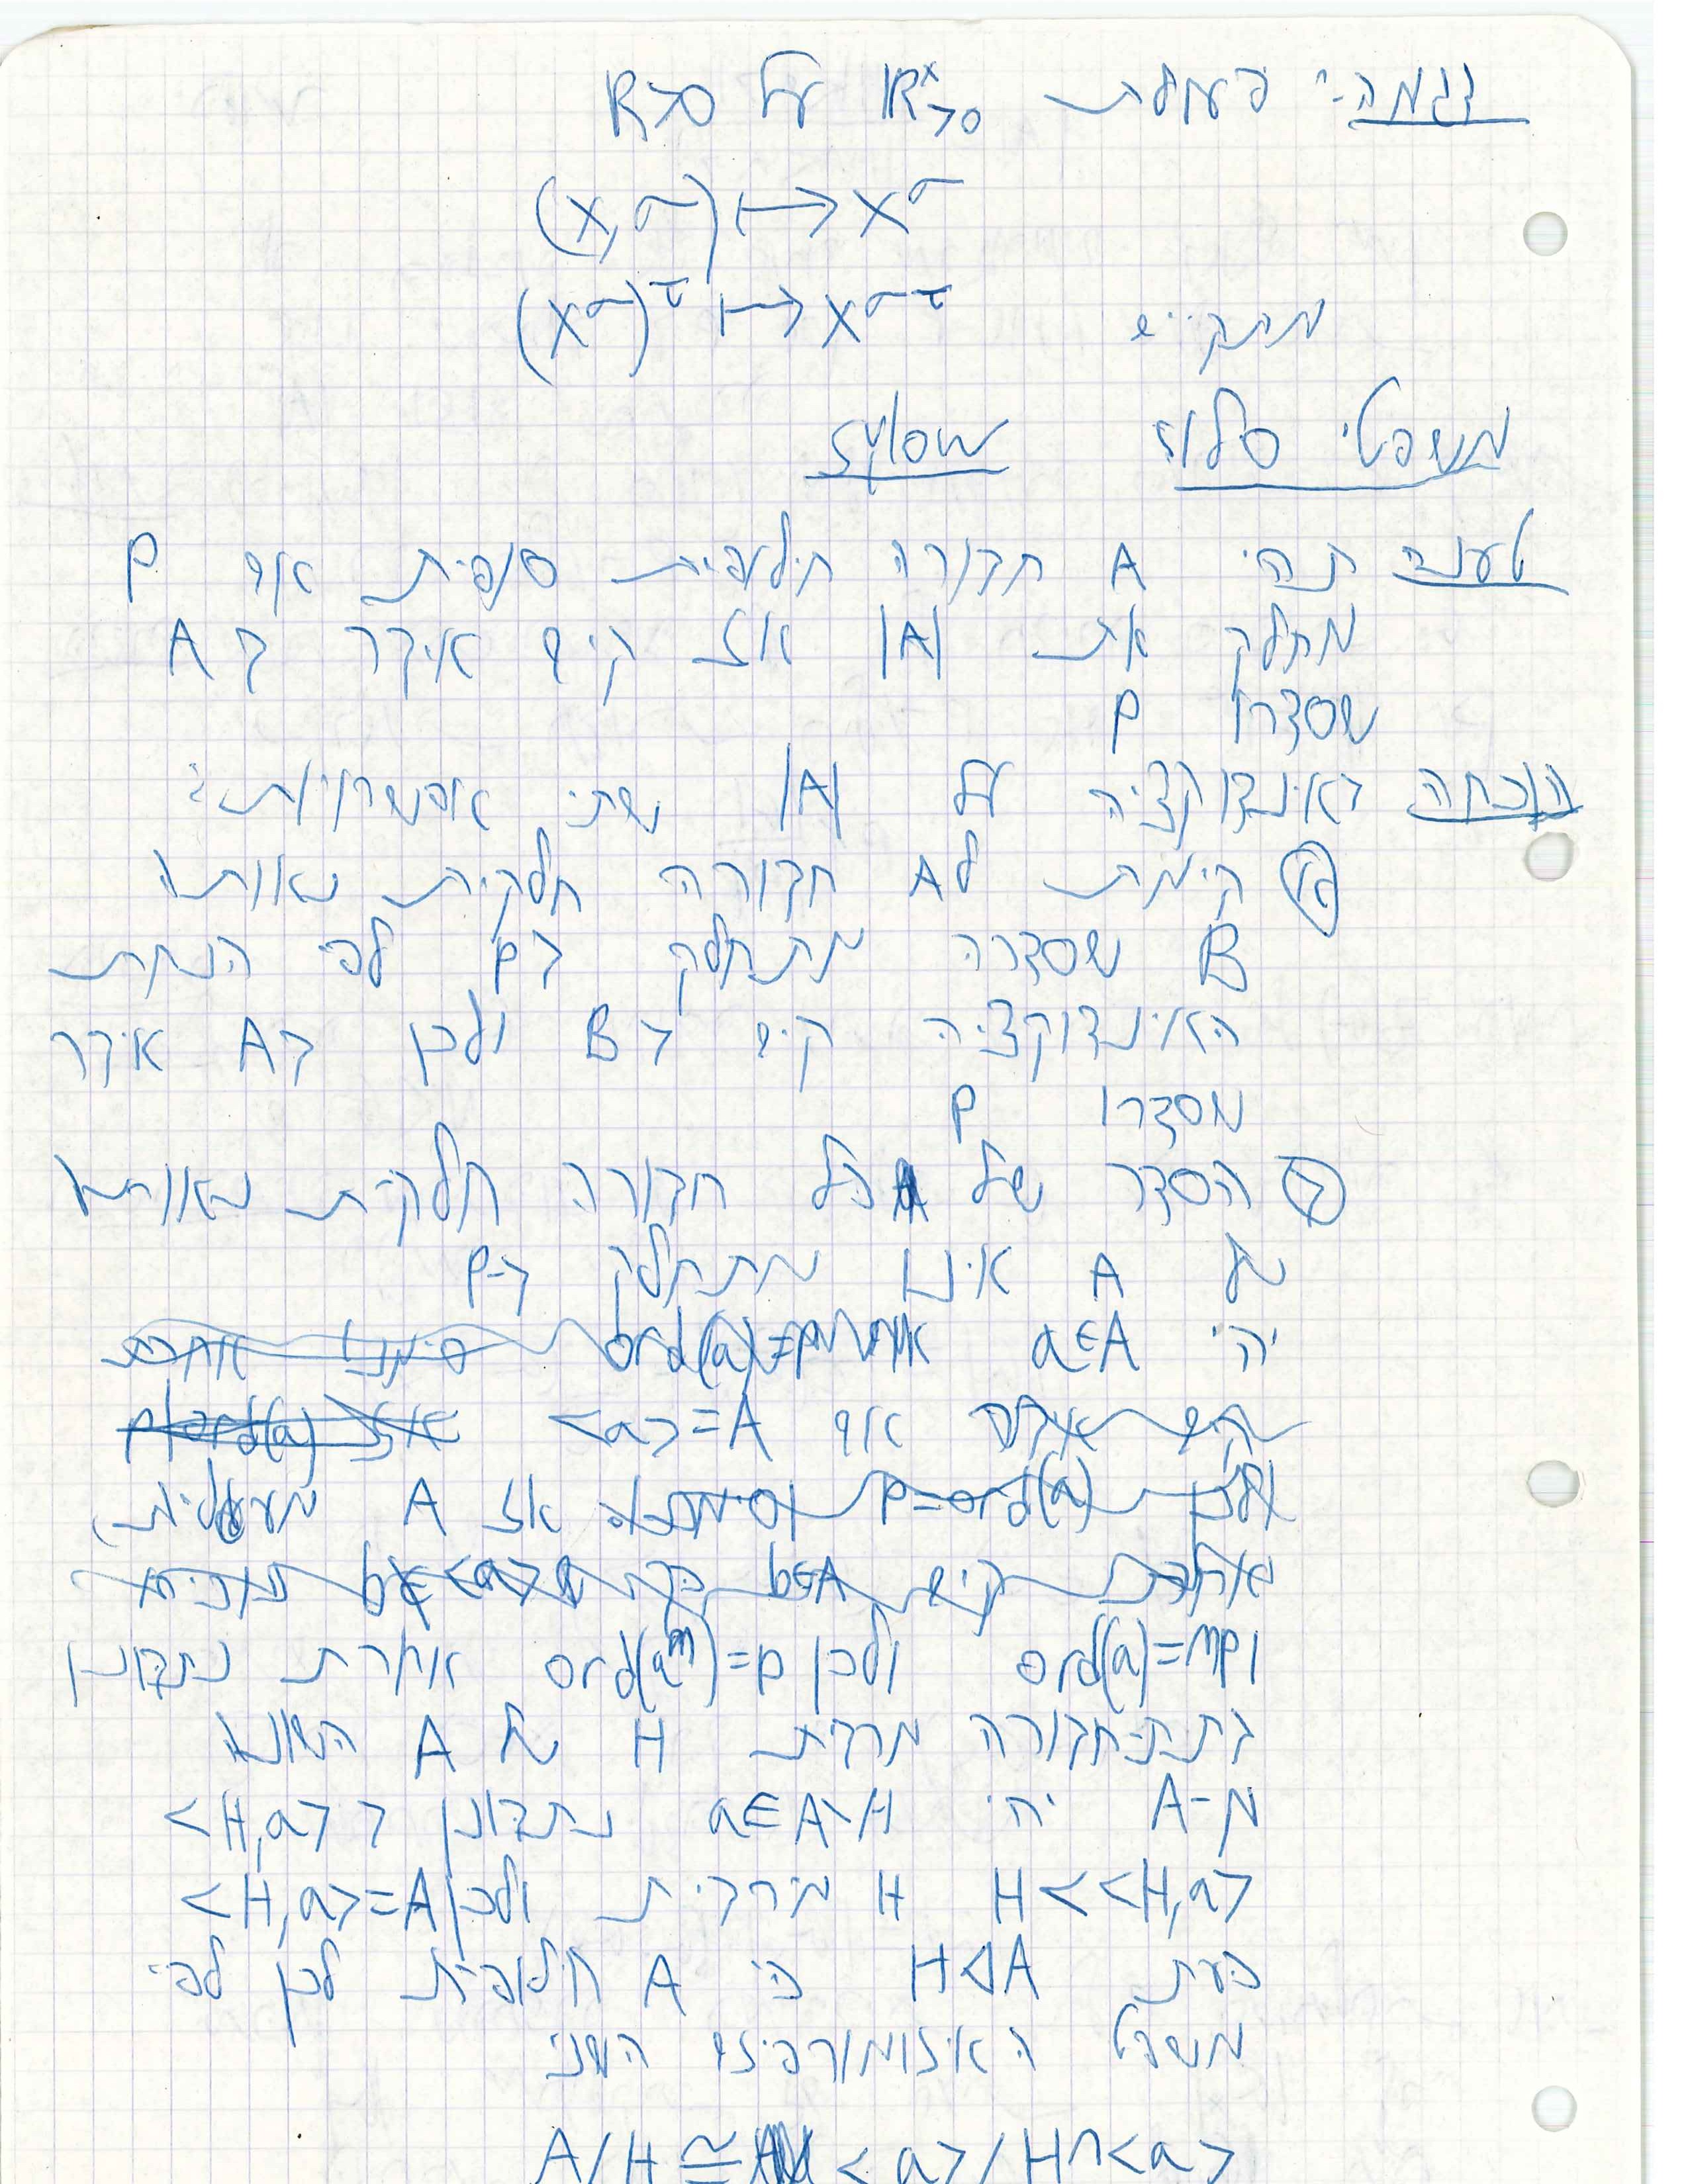 דגמה:- פעולת ℝˣ>0 על ℝ>0
(x,σ)↦x^σ
מתקיים (x^σ)^τ↦x^στ
משפטי סלוו Sylow
טענה תהי A חבורה חילופית סופית אם p
מחלק את |A| אז קיים איבר ב A
שסדרו p
הוכחה באינדוקציה על |A| שתי אפשרויות:
א קימת לA חבורה חלקית נאותה
B שסדרה מתחלק ב p לפי הנחת
האינדוקציה קיים ב B ולכן ב A איבר
מסדרו p
ב הסדר של כל חבורה חלקית נאותה
של A אינו מתחלק ב-p
יהי a∈A
אם <a>=A
אז A מעגלית,
ו ord(a)=mp ולכן ord(a^m)=p אחרת נתבונן
בתת חבורה מרבית H של A השונה
מ-A יהי a∈A∖H נתבונן ב <H,a>
H<<H,a> H מירבית ולכן <H,a>=A
כעת H⊲A כי A חילופית לכן לפי
משפט האיזומורפיזם השני
A/H≅<a>/H∩<a>